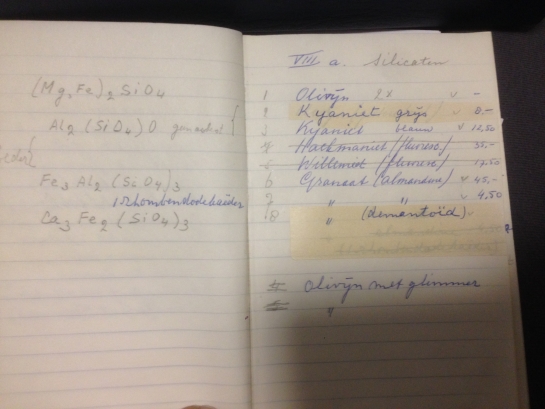 (Mg,Fe)2 SiO4
Al2 (SiO4)O
Fe3 Al2 (SiO4)3
rhombendodekaëder
Ca3 Fe2 (SiO4)3
VIII a. Silicaten
1 Olivÿn 2x v -
2 Kyaniet grÿs v 8.-
3 Kyaniet blauw v 12,50
4 Hackmaniet (fluoresc.) 35,-
5 Willemiet (fluoresc) 17.50
6 Granaat (almandien) v 45,-
7 " " v 4,50
8 " (demantoïd) v
Olivÿn met glimmer
"